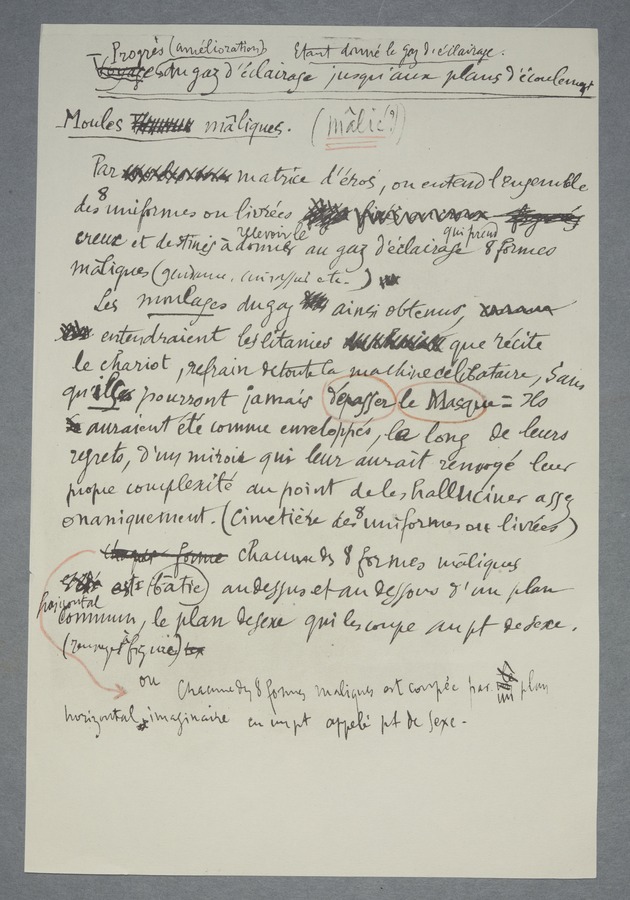 — Progrès (amélioration) Etant donné le gaz d'éclairage.
du gaz d'éclairage jusqu'aux plans d'écoulement
Moules mâliques. (mâlic (?))
Par matrice d'éros, on entend l'ensemble
des 8 uniformes ou livrées
creux et destinés à donner recevoir le au gaz d'éclairage qui prend 8 formes
mâliques (gendarme, cuirassier etc.)
Les moulages du gaz ainsi obtenus,
entendraient les litanies que récite
le chariot, refrain de toute la machine célibataire, Sans
qu'ils pourront jamais dépasser le Masque = Ils
auraient été comme enveloppés, le long de leurs
regrets, d'un miroir qui leur aurait renvoyé leur
propre complexité au point de les halluciner assez
onaniquement. (Cimetière des 8 uniformes ou livrées)
chacune des 8 formes mâliques
est (bâtie) au dessus et au dessous d'un plan
horizontal
commun, le plan de sexe qui les coupe au pt de sexe.
(renvoyer à figure)
ou Chacune des 8 formes maliques est coupée par un plan
horizontal imaginaire en un pt appelé pt de sexe.